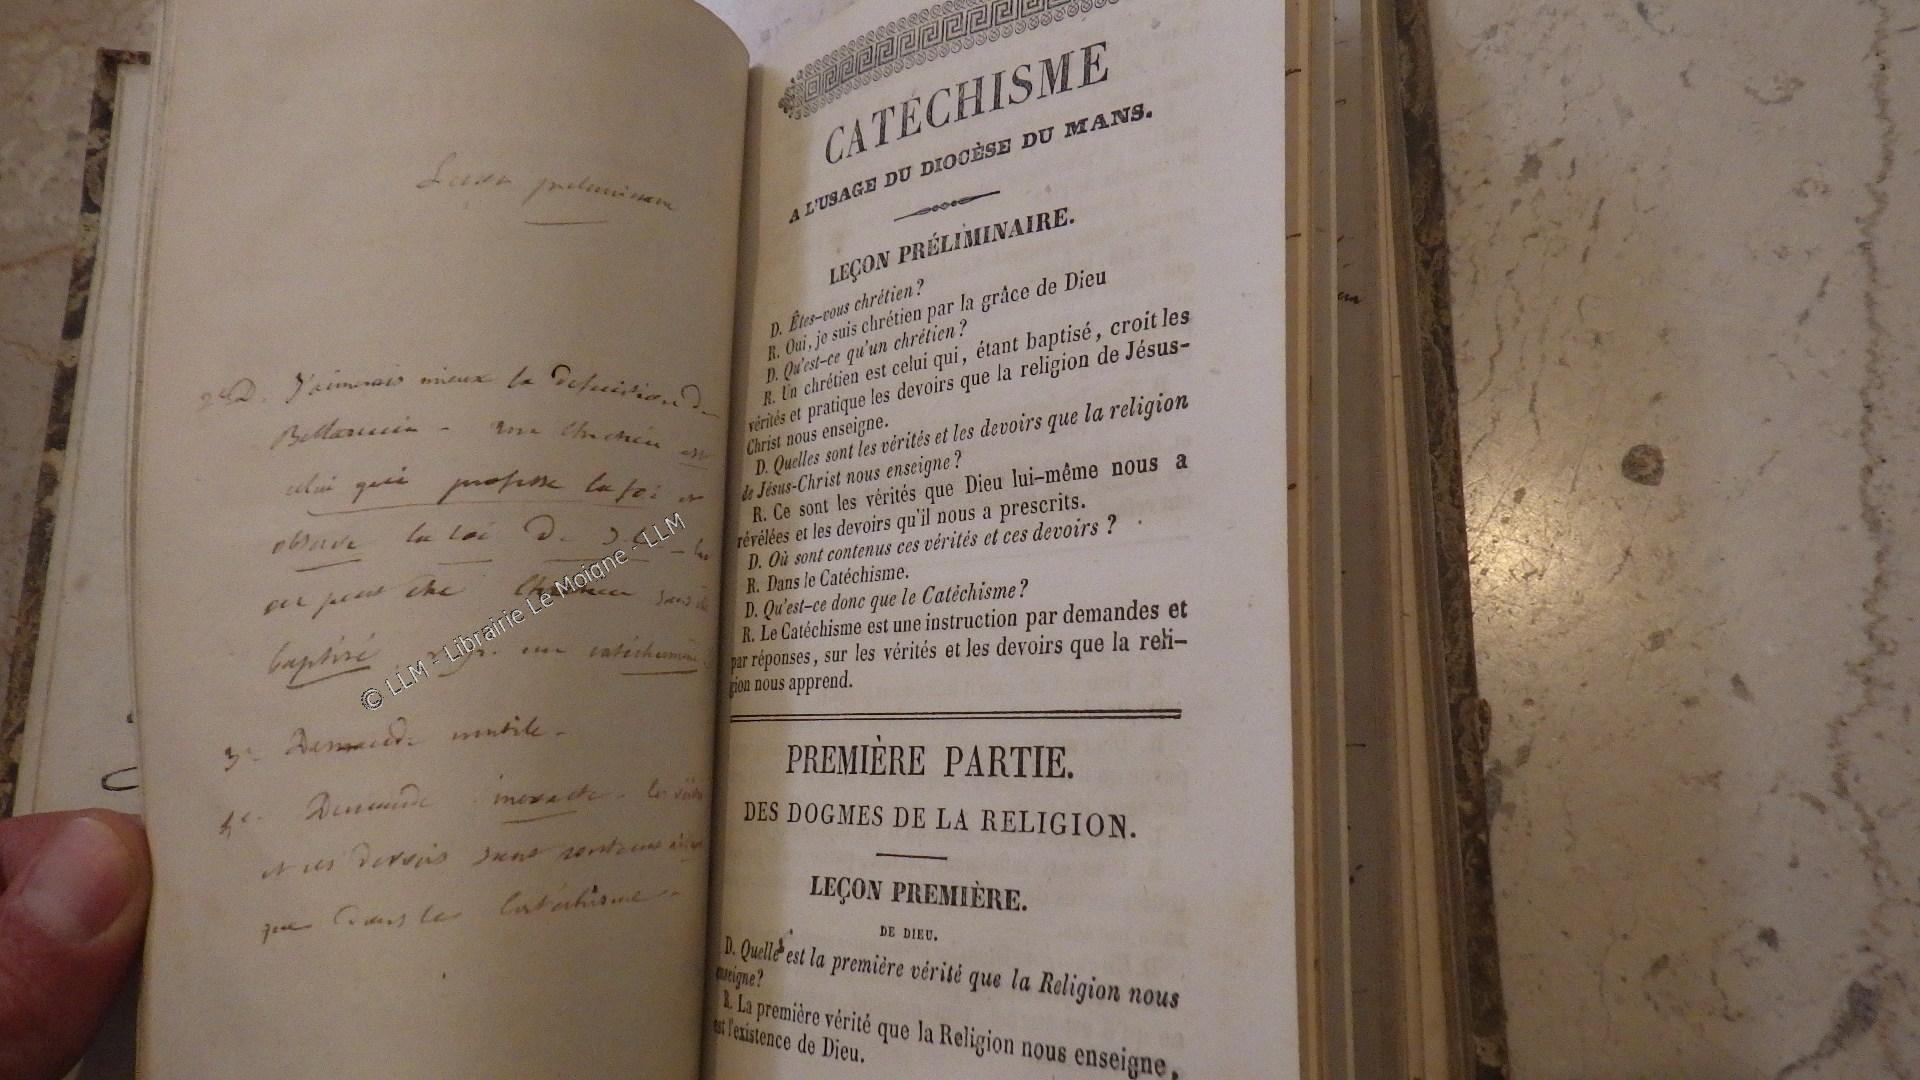 Leçon préliminaire
2e D. J'aimerais mieux la définition de
Bellarmin - un chrétien est
celui qui professe la foi et
observe la loi de J.C. -
on peut être chrétien sans être
baptisé. un catéchumène
3e Demande inutile.
4e Demande inexacte. les vérités
et ces devoirs sont contenus
que dans le Catéchisme.
© LLM - Librairie Le Moigne - LLM
CATÉCHISME
A L'USAGE DU DIOCÈSE DU MANS.
LEÇON PRÉLIMINAIRE.
D. Êtes-vous chrétien?
R. Oui, je suis chrétien par la grâce de Dieu
D. Qu'est-ce qu'un chrétien?
R. Un chrétien est celui qui, étant baptisé, croit les
vérités et pratique les devoirs que la religion de Jésus-
Christ nous enseigne.
D. Quelles sont les vérités et les devoirs que la religion
de Jésus-Christ nous enseigne?
R. Ce sont les vérités que Dieu lui-même nous a
révélées et les devoirs qu'il nous a prescrits.
D. Où sont contenus ces vérités et ces devoirs?
R. Dans le Catéchisme.
D. Qu'est-ce donc que le Catéchisme?
R. Le Catéchisme est une instruction par demandes et
par réponses, sur les vérités et les devoirs que la reli-
gion nous apprend.
PREMIÈRE PARTIE.
DES DOGMES DE LA RELIGION.
LEÇON PREMIÈRE.
DE DIEU.
D. Quelle est la première vérité que la Religion nous
enseigne?
R. La première vérité que la Religion nous enseigne,
est l'existence de Dieu.